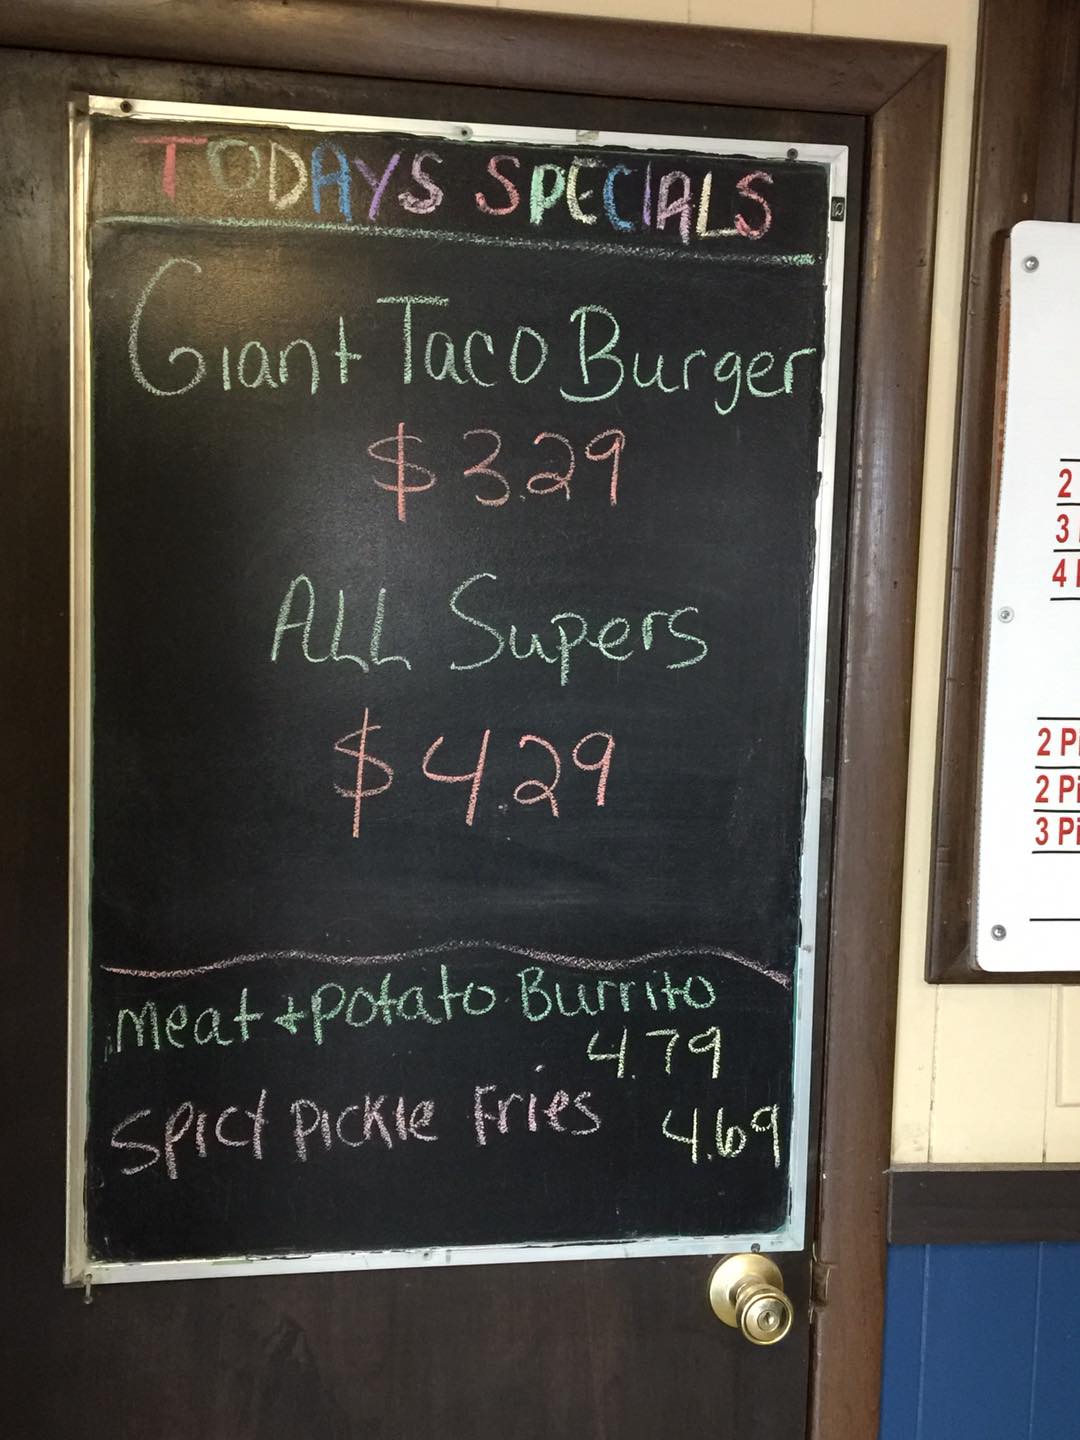 TODAYS SPECIALS
Giant Taco Burger
$3.29
ALL Supers
$4.29
Meat + Potato Burrito
4.79
Spicy Pickle Fries 4.69
2
3
4
2 Pi
2 Pi
3 Pi